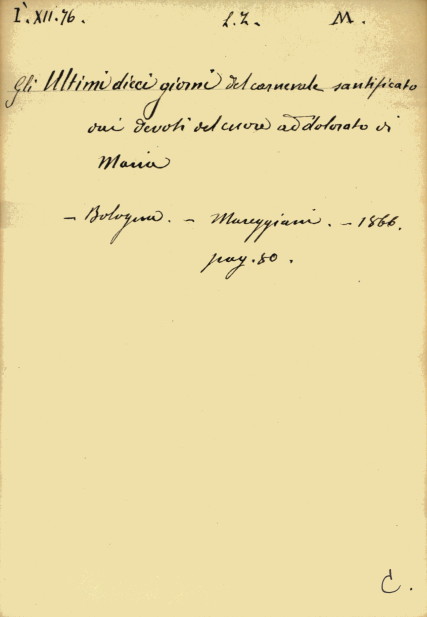 I'. XII. 76. L.Z. M.
Gli Ultimi dieci giorni del carnevale santificato
dai devoti del cuore addolorato di
Maria
- Bologna. - Mareggiani. - 1866.
pag. 80.
C.